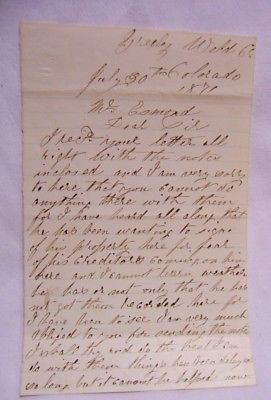 Greeley Weld Co
July 30th Colorado
1871
Mr. Esmond
Dear Sir
I recd. your letter all
right with the notes
inclosed and I am very sorry
to here that you cannot do
anything there with them
for I have heard all along that
he has been wanting to signe
of his property here for fear
of his Creditors coming on him
here and I cannot learn weather
he has or not only that he has
not got them recorded here for
I have been to see I am very much
oblied to you for sending the note
I shall try and do the best I can
do with them things has been delayed
so long but it cannot be helped now